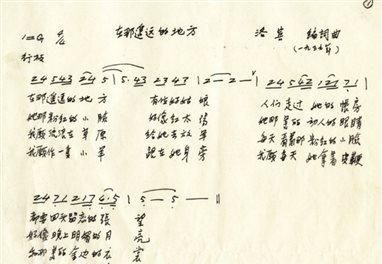 在那遥远的地方
1=G 4/4 洛宾 编词曲
行板 (一九三九年)
24 543 24 5 | 5·43 2343 | 2-2- | 24 542 121 71 |
在那遥远的地方 有位好姑娘 人们走过 她的帐房
她那粉红的小脸 好像红太阳 她那美的 动人的眼睛
我愿流浪在草原 跟她去放羊 每天看着那 粉红的小脸
我愿作一只小羊 跟在她身旁 我愿每天 她拿着皮鞭
2471 217 4·5 | 5-5- ||
都要回头留恋的张望
好像晚上明媚的月亮
和那美的金边的衣裳